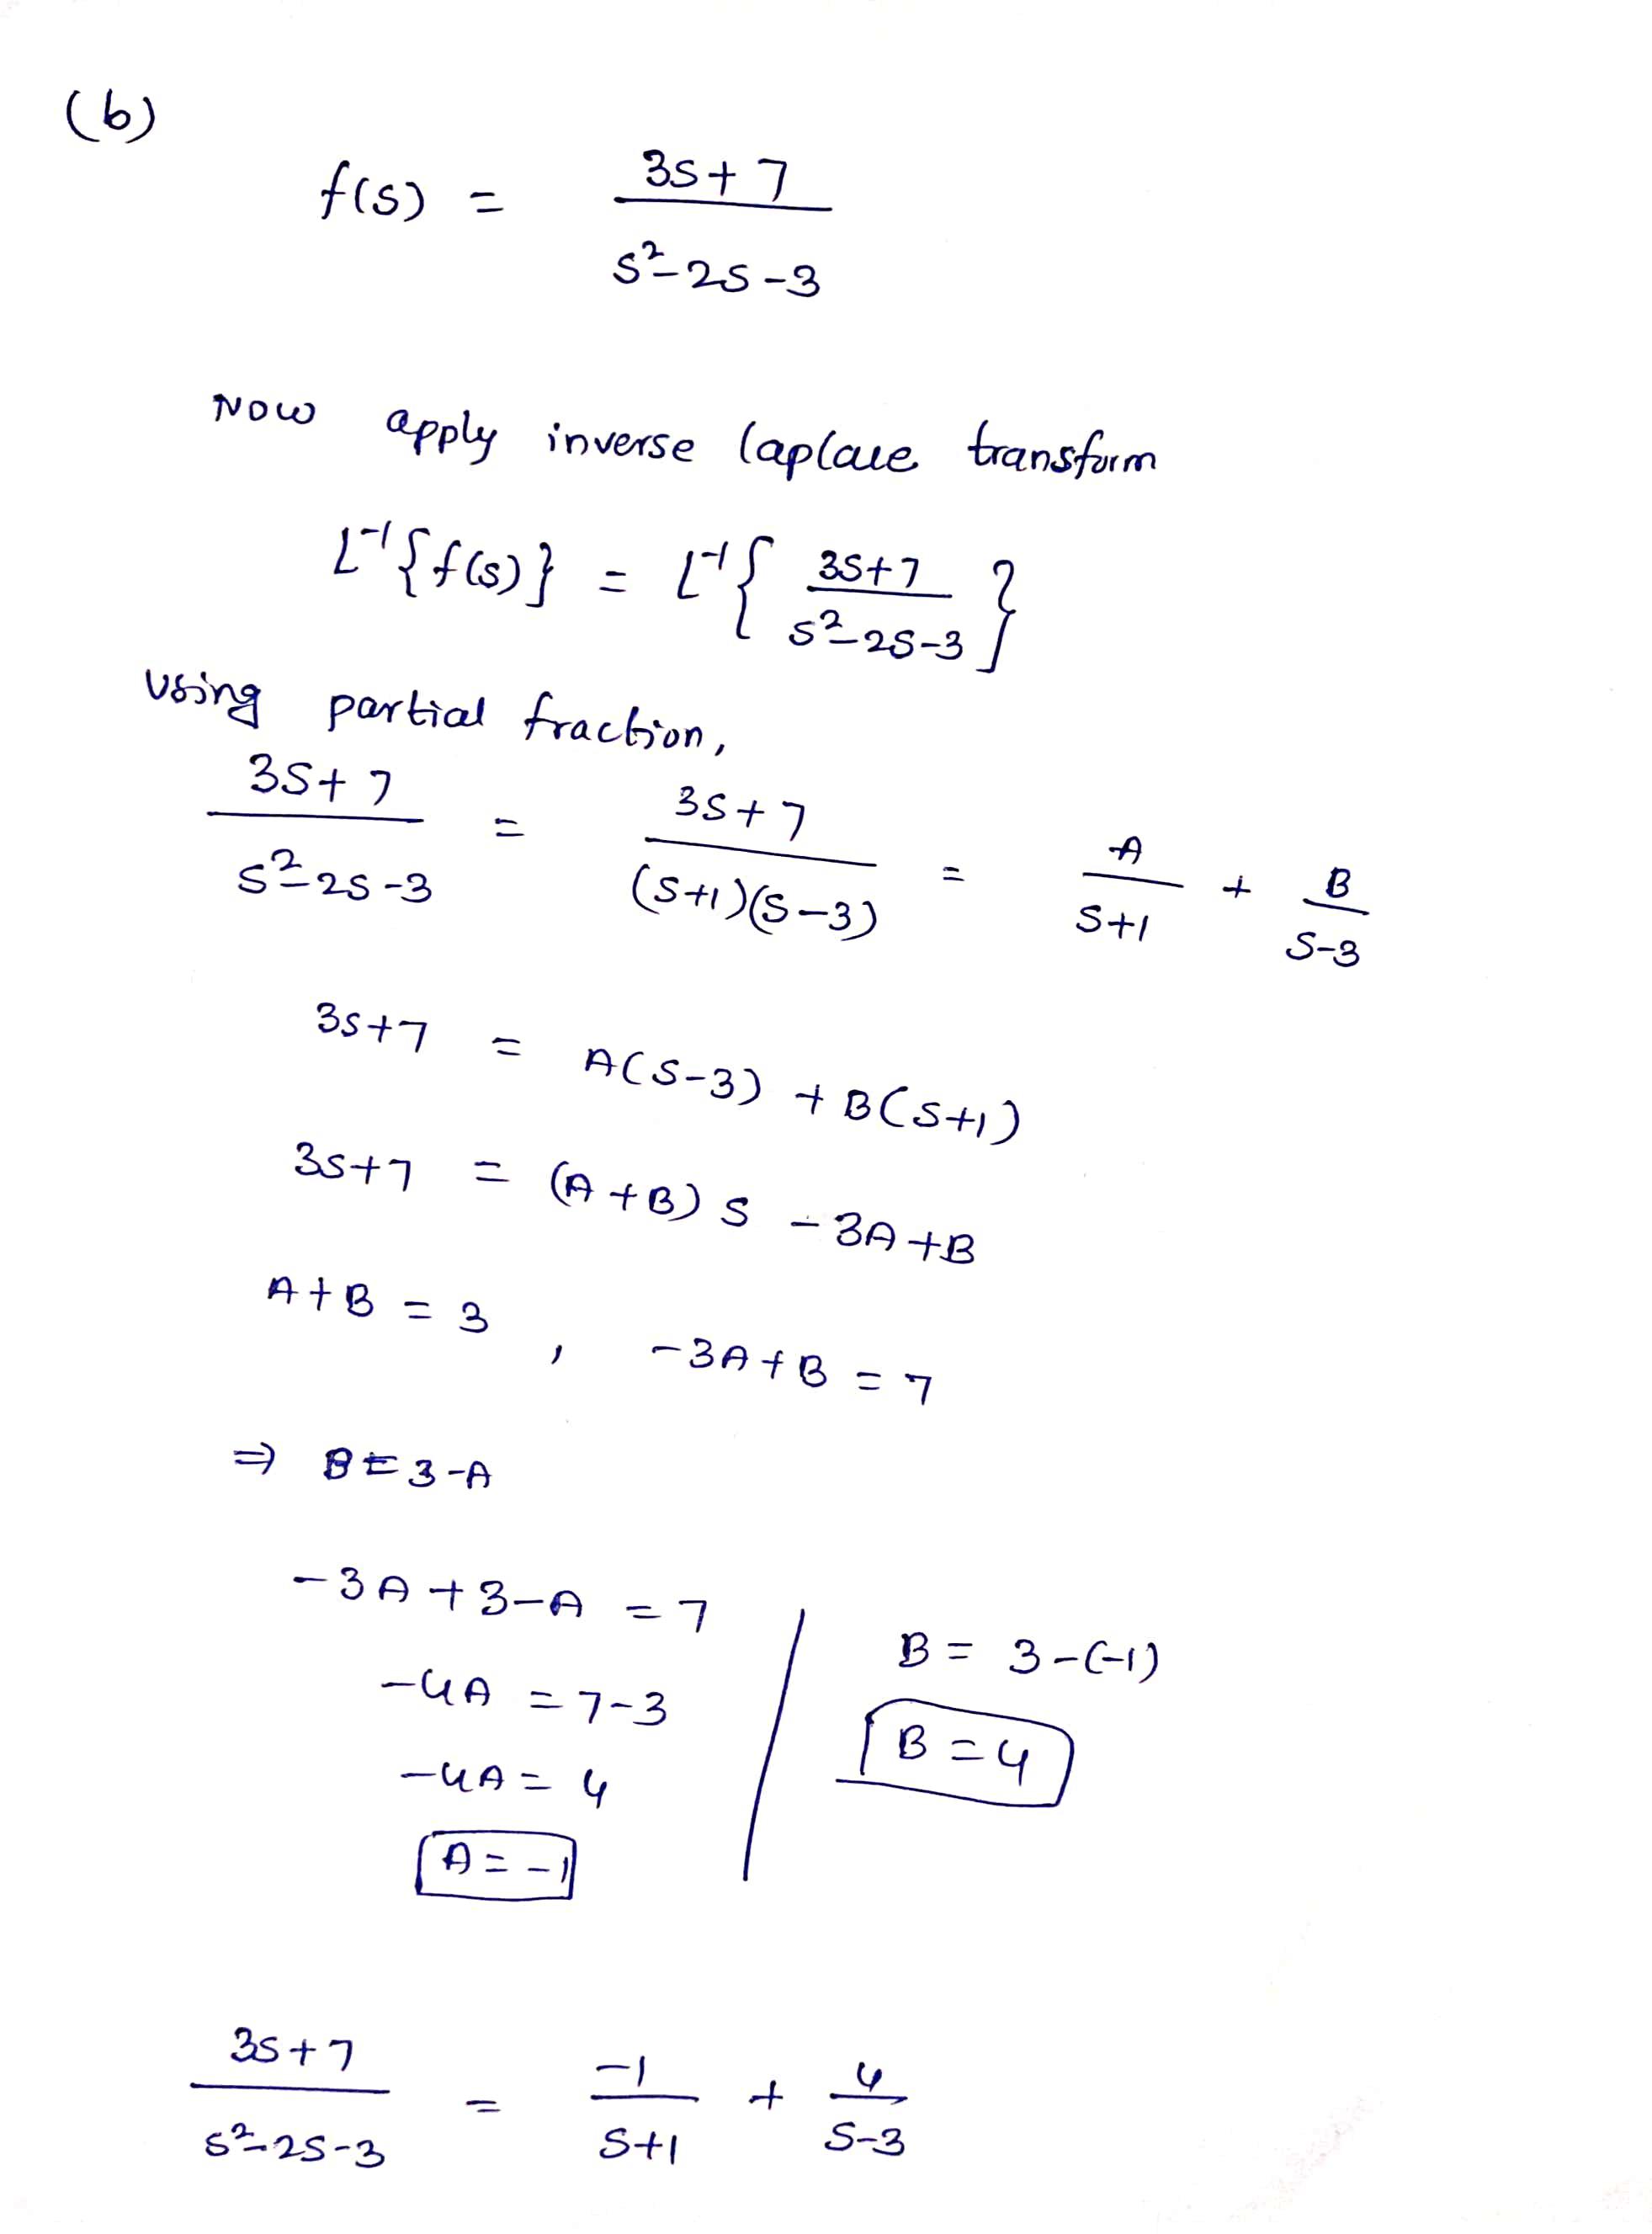 (b)
f(s) = \frac{3s+7}{s^2-2s-3}
Now apply inverse laplace transform
L^{-1}{f(s)} = L^{-1}{\frac{3s+7}{s^2-2s-3}}
Using partial fraction,
\frac{3s+7}{s^2-2s-3} = \frac{3s+7}{(s+1)(s-3)} = \frac{A}{s+1} + \frac{B}{s-3}
3s+7 = A(s-3) + B(s+1)
3s+7 = (A+B)s -3A+B
A+B = 3, -3A+B = 7
⇒ B = 3-A
-3A+3-A = 7
-4A = 7-3
-4A = 4
A = -1
B = 3-(-1)
B = 4
\frac{3s+7}{s^2-2s-3} = \frac{-1}{s+1} + \frac{4}{s-3}